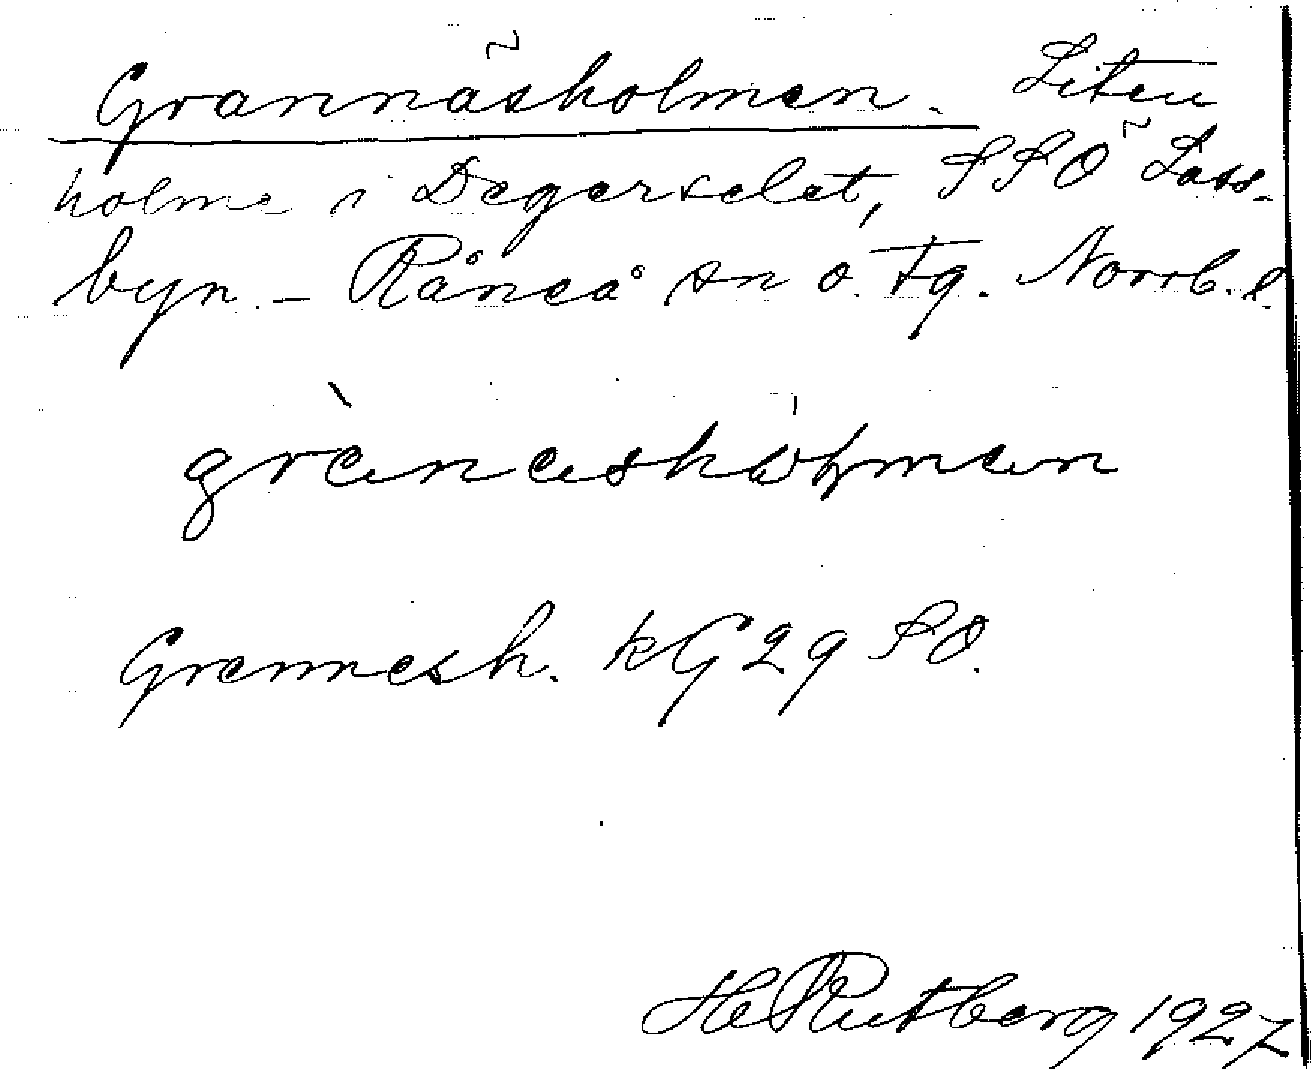 Grannäsholmen. Liten
holme i Degerselet, SSÖ Lass-
byn. – Råneå sn o. tg. Norrb. l.
Grennesh. kG 29 SO.
H Rutberg 1927